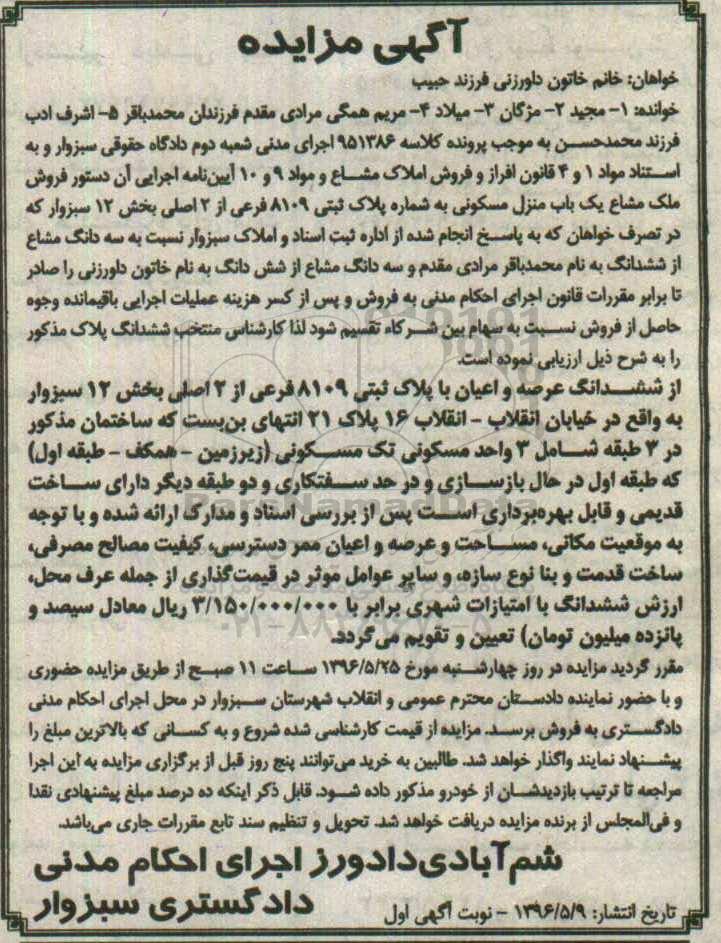 آگهی مزایده
خواهان: خانم خاتون داورزنی فرزند حبیب
خوانده: ۱- مجید ۲- مژگان ۳- میلاد ۴- مریم همگی مرادی مقدم فرزندان محمدباقر ۵- اشرف ادب
فرزند محمدحسن به موجب پرونده کلاسه ۹۵۱۳۸۶ اجرای مدنی شعبه دوم دادگاه حقوقی سبزوار و به
استناد مواد ۱ و ۴ قانون افراز و فروش املاک مشاع و مواد ۹ و ۱۰ آیین‌نامه اجرایی آن دستور فروش
ملک مشاع یک باب منزل مسکونی به شماره پلاک ثبتی ۸۱۰۹ فرعی از ۲ اصلی بخش ۱۲ سبزوار که
در تصرف خواهان که به پاسخ انجام شده از اداره ثبت اسناد و املاک سبزوار نسبت به سه دانگ مشاع
از ششدانگ به نام محمدباقر مرادی مقدم و سه دانگ مشاع از شش دانگ به نام خاتون داورزنی را صادر
تا برابر مقررات قانون اجرای احکام مدنی به فروش و پس از کسر هزینه عملیات اجرایی باقیمانده وجوه
حاصل از فروش نسبت به سهام بین شرکاء تقسیم شود لذا کارشناس منتخب ششدانگ پلاک مذکور
را به شرح ذیل ارزیابی نموده است.
از ششدانگ عرصه و اعیان با پلاک ثبتی ۸۱۰۹ فرعی از ۲ اصلی بخش ۱۲ سبزوار
به واقع در خیابان انقلاب - انقلاب ۱۶ پلاک ۲۱ انتهای بن‌بست که ساختمان مذکور
در ۳ طبقه شامل ۳ واحد مسکونی تک مسکونی (زیرزمین - همکف - طبقه اول)
که طبقه اول در حال بازسازی و در حد سفتکاری و دو طبقه دیگر دارای ساخت
قدیمی و قابل بهره‌برداری است پس از بررسی اسناد و مدارک ارائه شده و با توجه
به موقعیت مکانی، مساحت و عرصه و اعیان ممر دسترسی، کیفیت مصالح مصرفی،
ساخت قدمت و بنا نوع سازه، و سایر عوامل موثر در قیمت‌گذاری از جمله عرف محل،
ارزش ششدانگ با امتیازات شهری برابر با ۳/۱۵۰/۰۰۰/۰۰۰ ریال معادل سیصد و
پانزده میلیون تومان) تعیین و تقویم می‌گردد.
مقرر گردید مزایده در روز چهارشنبه مورخ ۱۳۹۶/۵/۲۵ ساعت ۱۱ صبح از طریق مزایده حضوری
و با حضور نماینده دادستان محترم عمومی و انقلاب شهرستان سبزوار در محل اجرای احکام مدنی
دادگستری به فروش برسد. مزایده از قیمت کارشناسی شده شروع و به کسانی که بالاترین مبلغ را
پیشنهاد نمایند واگذار خواهد شد. طالبین به خرید می‌توانند پنج روز قبل از برگزاری مزایده به این اجرا
مراجعه تا ترتیب بازدیدشان از خودرو مذکور داده شود. قابل ذکر اینکه ده درصد مبلغ پیشنهادی نقدا
و فی‌المجلس از برنده مزایده دریافت خواهد شد. تحویل و تنظیم سند تابع مقررات جاری می‌باشد.
شم‌آبادی‌دادورز اجرای احکام مدنی
دادگستری سبزوار
تاریخ انتشار: ۱۳۹۶/۵/۹ - نوبت آگهی اول